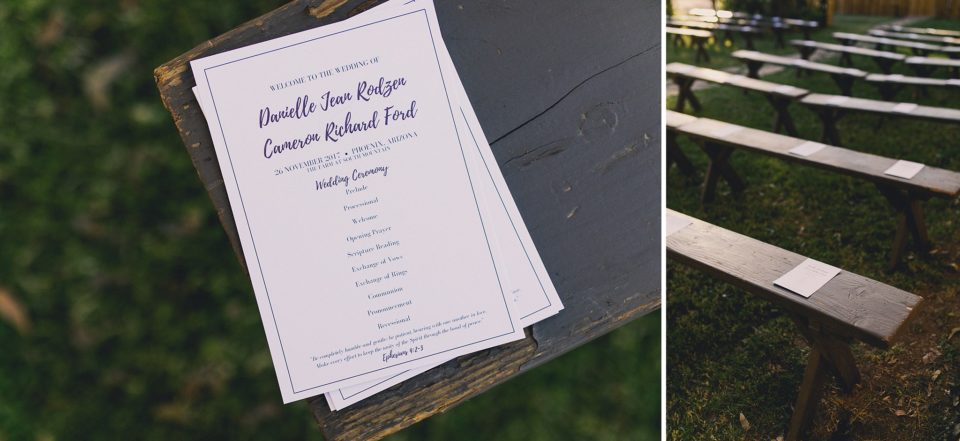 WELCOME TO THE WEDDING OF
Danielle Jean Rodzen
Cameron Richard Ford
26 NOVEMBER 2017 • PHOENIX, ARIZONA
THE FARM AT SOUTH MOUNTAIN
Wedding Ceremony
Prelude
Processional
Welcome
Opening Prayer
Scripture Reading
Exchange of Vows
Exchange of Rings
Communion
Pronouncement
Recessional
"Be completely humble and gentle; be patient, bearing with one another in love.
Make every effort to keep the unity of the Spirit through the bond of peace."
Ephesians 4:2-3